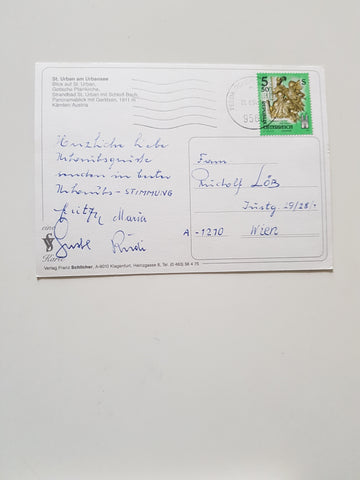 St. Urban am Urbansee
Blick auf St. Urban,
Gotische Pfarrkirche,
Strandbad St. Urban mit Schloß Bach,
Panoramablick mit Gerlitzen, 1911 m
Kärnten/Austria
5 S
50
ÖSTERREICH
Herzliche liebe
Urlaubsgrüße
senden in bester
Urlaubs-STIMMUNG
Maria
Rudi
Herrn
Rudolf Löb
29/28/
A - 1210 Wien
eine
Karte
Verlag Franz Schilcher, A-9010 Klagenfurt, Heinzgasse 6, Tel. (0 463) 56 4 75